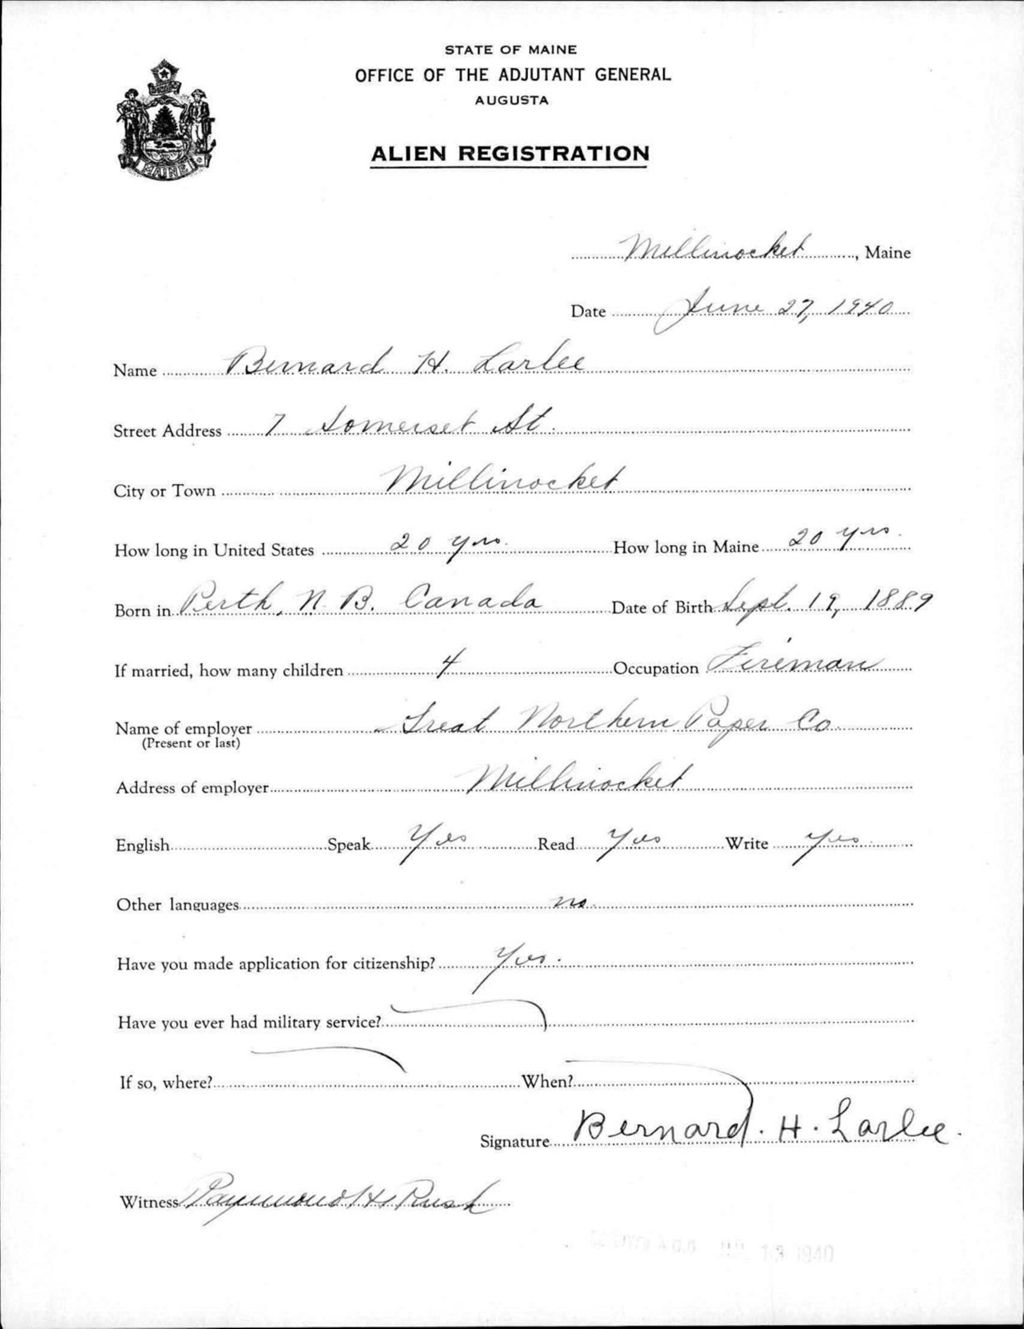 STATE OF MAINE
OFFICE OF THE ADJUTANT GENERAL
AUGUSTA
ALIEN REGISTRATION
MAINE
Millinocket, Maine
Date June 27, 1940
Name Bernard H. Larlee
Street Address 7 Somerset St.
City or Town Millinocket
How long in United States 20 yrs. How long in Maine 20 yrs.
Born in Perth, N. B. Canada Date of Birth Sept. 19, 1889
If married, how many children 4 Occupation Fireman
Name of employer Great Northern Paper Co.
(Present or last)
Address of employer Millinocket
English Speak Yes Read Yes Write Yes
Other languages no.
Have you made application for citizenship? Yes.
Have you ever had military service?
If so, where? When?
Signature Bernard. H. Larlee.
Witness Raymond H Rush
1940